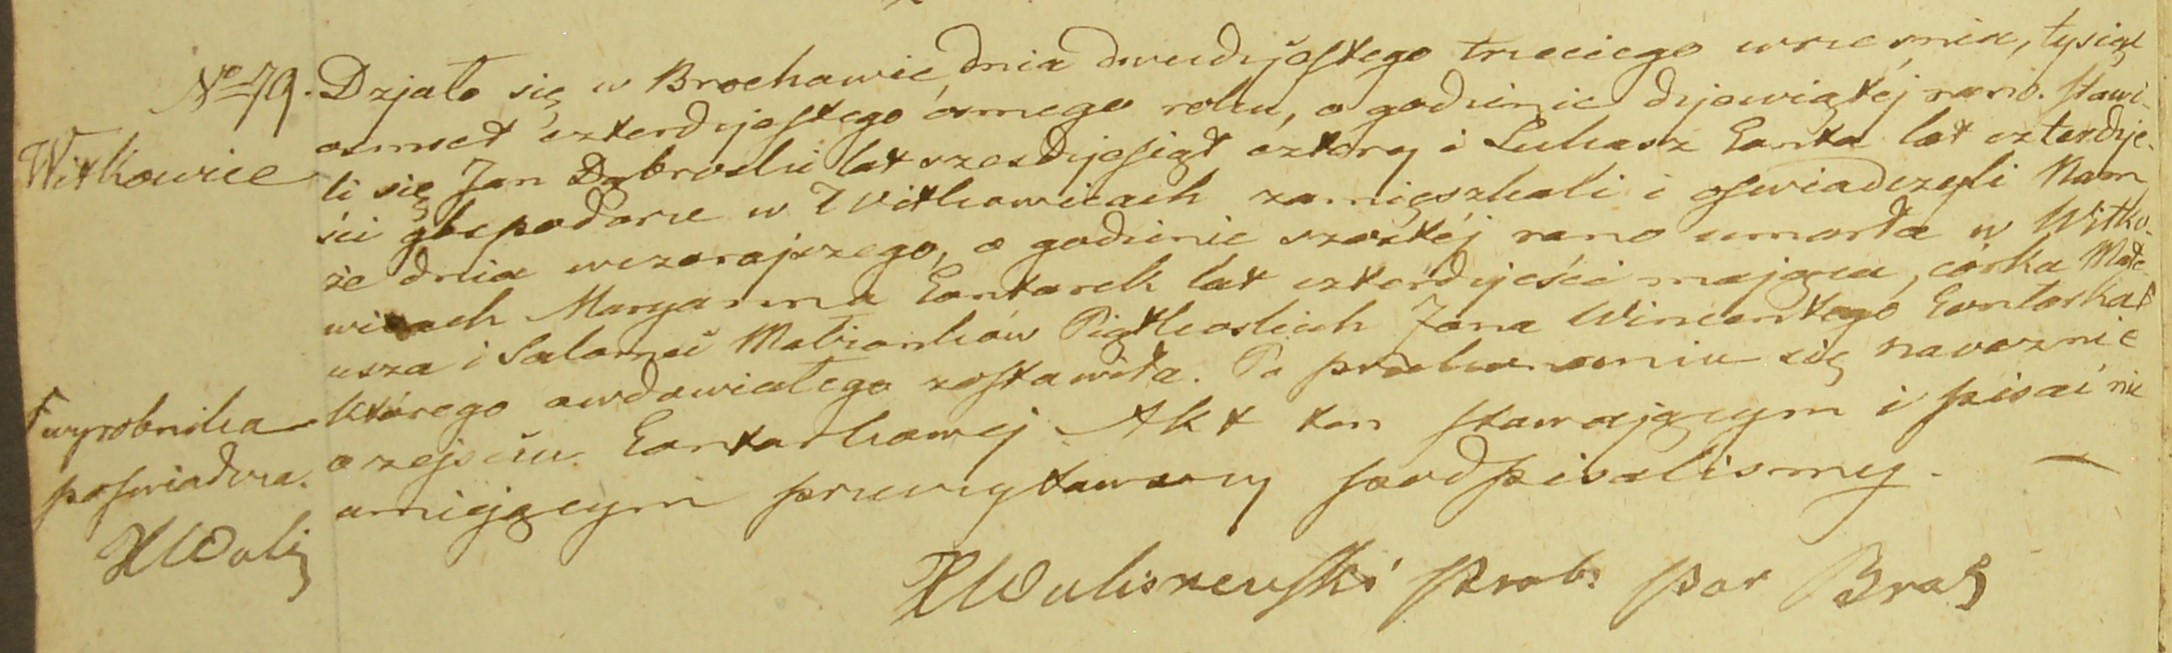 No 79.
Witkowice
Działo się w Brochowie dnia dwudziestego trzeciego września, tysiąc
osmset czterdziestego ósmego roku, o godzinie dziewiątéj rano. Stawi-
li się Jan Dąbroski lat sześdziesiąt cztery i Lukasz Łanta lat czterdzie-
ści gospodarze w Witkowicach zamięszkali i oświadczyli Nam
że dnia wczorajszego, o godzinie szóstéj rano umarła w Witko-
wicach Maryanna Łontarek lat czterdzieści mająca, córka Mate-
usza i Salomei Małżonków Piątkoskich Jana Wincentego Łontarka
którego owdowiałego zostawiła. Po przekonaniu się naocznie
o zejściu Łontarkowej Akt ten stawającym i pisać nie
umiejącym przeczytawszy podpisaliśmy. —
wyrobnika
poświadcza.
XWali
XWaliszewski Prob: Par Bro